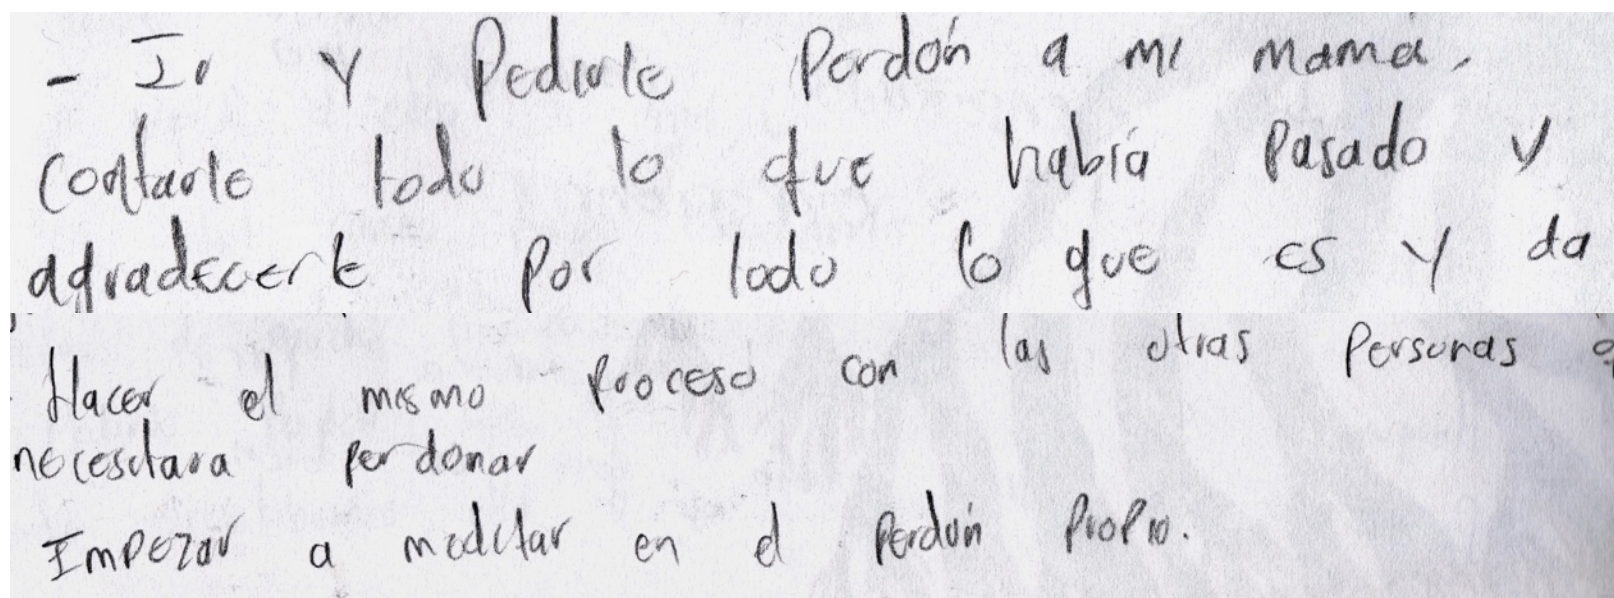 - Ir y Pedirle Perdón a mi mamá,
contarle todo lo que había pasado y
agradecerle por todo lo que es y da
Hacer el mismo proceso con las otras Personas
necesitara perdonar
Impezar a meditar en el perdón propio.